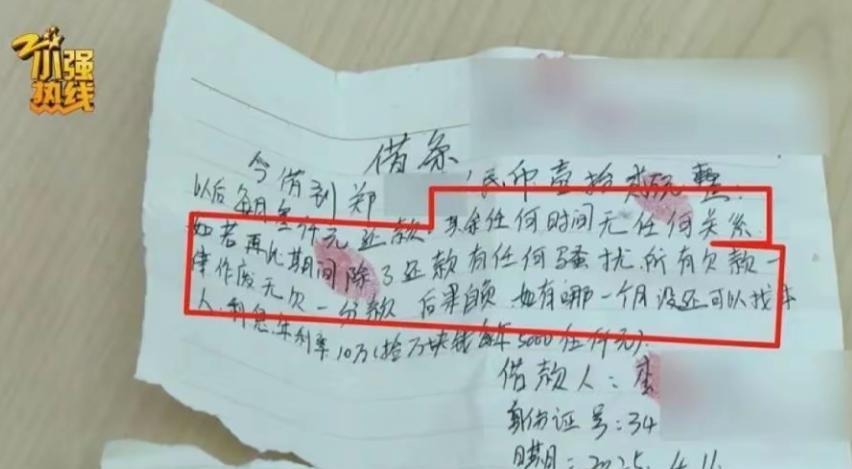 小强热线
借条
今借到郑 人民币壹拾贰万元整.
以后每月叁仟元还款,其余任何时间无任何关系.
如若再此期间除了还款有任何骚扰.所有欠款一
律作废无欠一分款 后果自负 如有哪一个月没还可以找本
人.利息.年利率10万(拾万块钱每年5000伍仟元).
借款人:李
身份证号:34
日期:2025.4.11